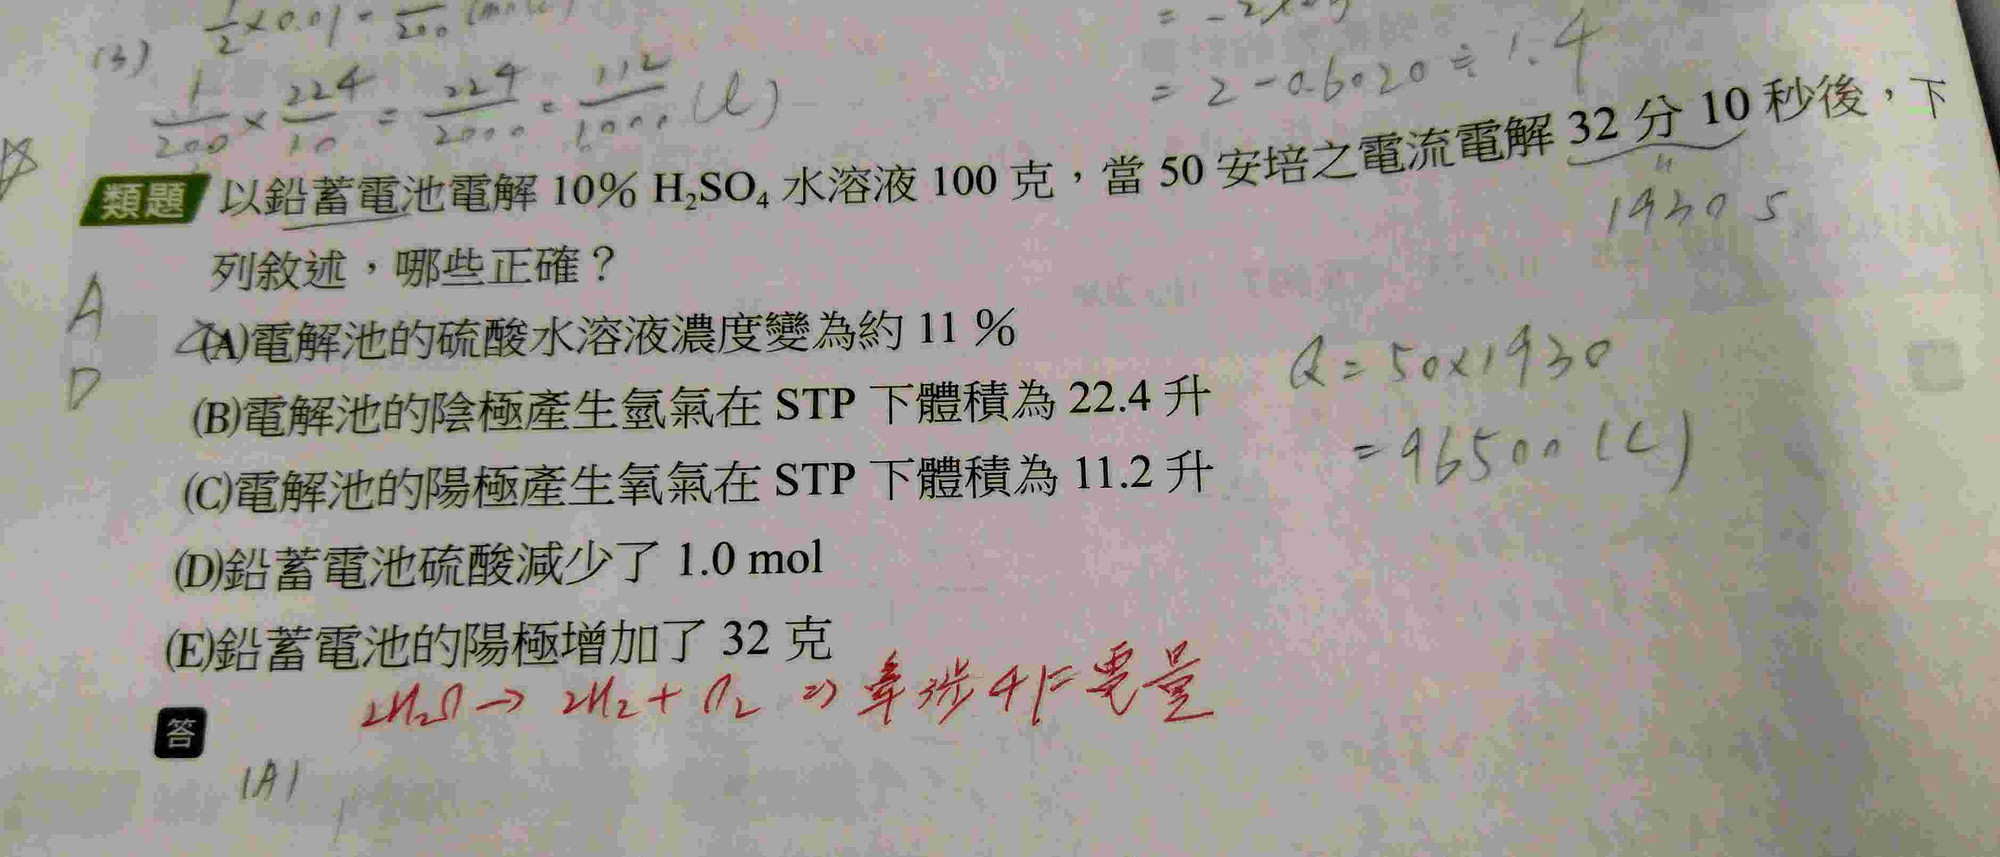 (3) 1/2 × 0.01 = /200 (mole)
1/200 × 224/10 = 224/2000 = 112/1000 (l)
= 2 - 0.6020 ≒ 1.4
類題 以鉛蓄電池電解 10% H₂SO₄ 水溶液 100 克，當 50 安培之電流電解 32 分 10 秒後，下
1930 s
列敘述，哪些正確？
A
(A)電解池的硫酸水溶液濃度變為約 11 %
D
(B)電解池的陰極產生氫氣在 STP 下體積為 22.4 升
Q = 50×1930
(C)電解池的陽極產生氧氣在 STP 下體積為 11.2 升
= 96500 (C)
(D)鉛蓄電池硫酸減少了 1.0 mol
(E)鉛蓄電池的陽極增加了 32 克
2H₂O → 2H₂ + O₂ ⇒ 牽涉4F電量
答
(A)